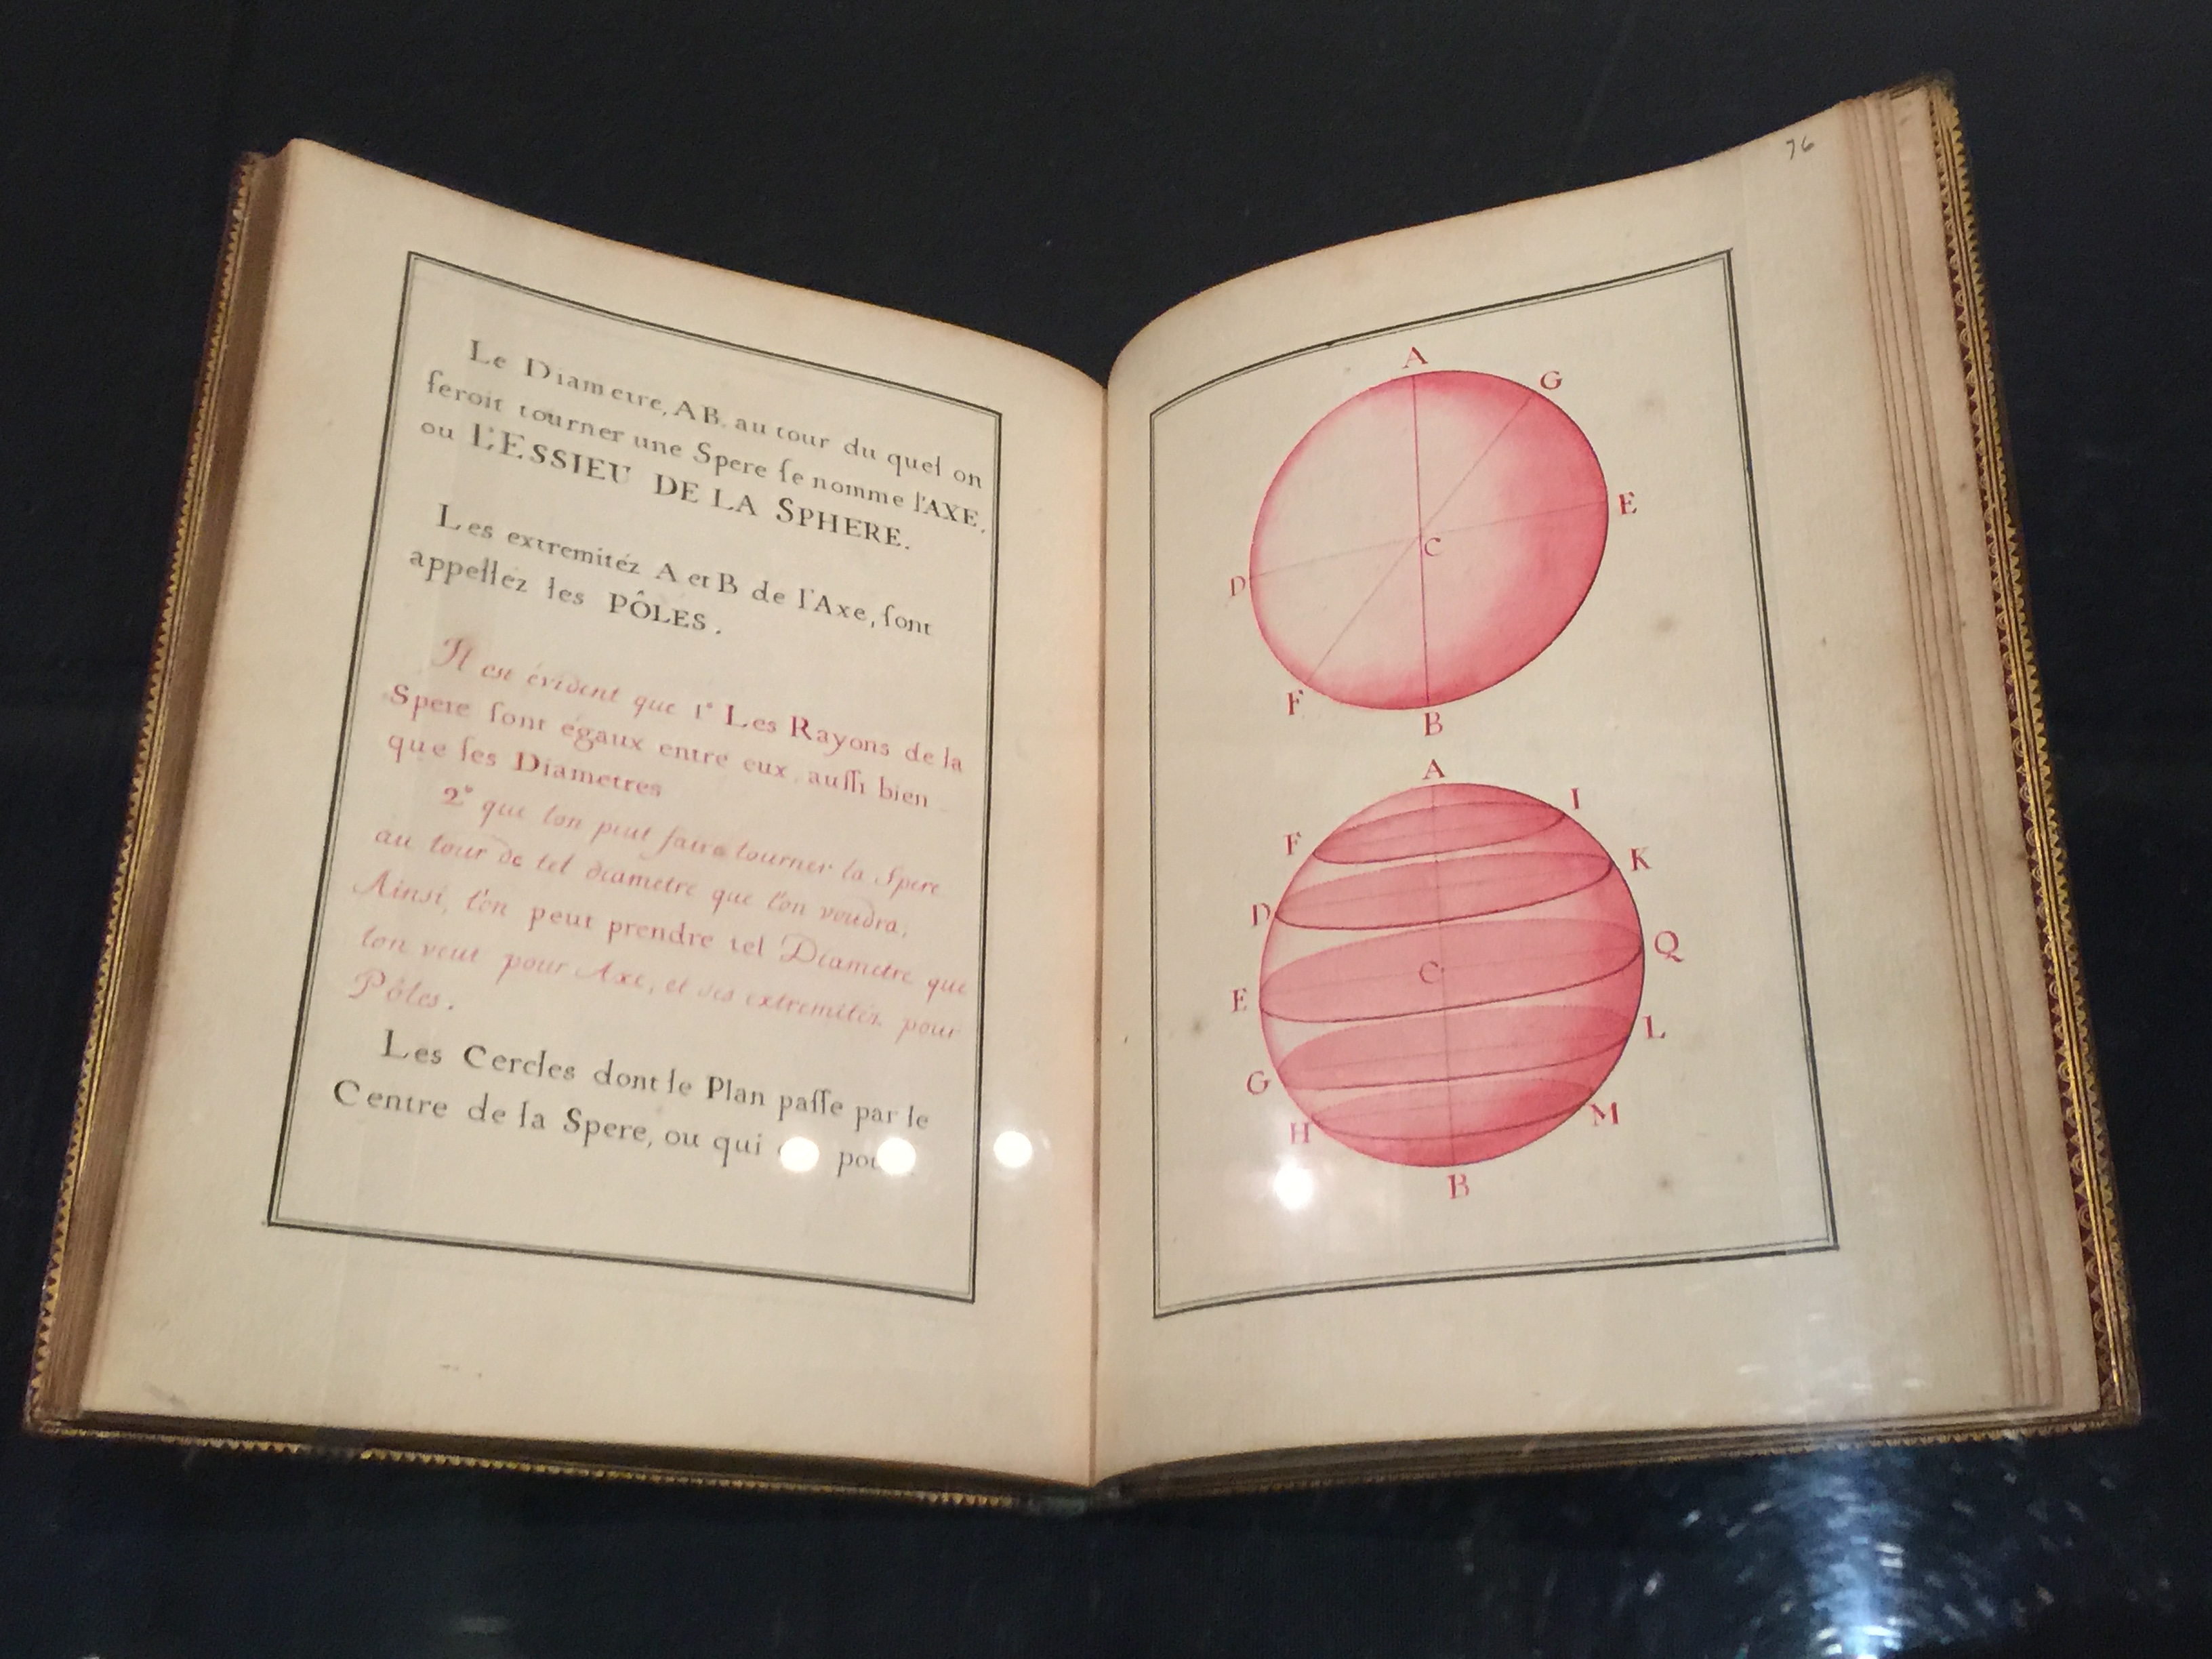 Le Diametre, AB. au tour du quel on
feroit tourner une Spere se nomme l'AXE,
ou L'ESSIEU DE LA SPHERE.
Les extremitéz A et B de l'Axe, sont
appellez les PÔLES.
Il est évident que 1° Les Rayons de la
Spere sont égaux entre eux aussi bien
que ses Diametres
2° que l'on peut faire tourner la Spere
au tour de tel diametre que l'on voudra,
Ainsi, l'on peut prendre tel Diametre que
l'on veut pour Axe, et ses extremitéz pour
Pôles.
Les Cercles dont le Plan passe par le
Centre de la Spere, ou qui
76
A
G
E
C
D
F
B
A
I
F
K
D
Q
C
E
L
G
M
H
B